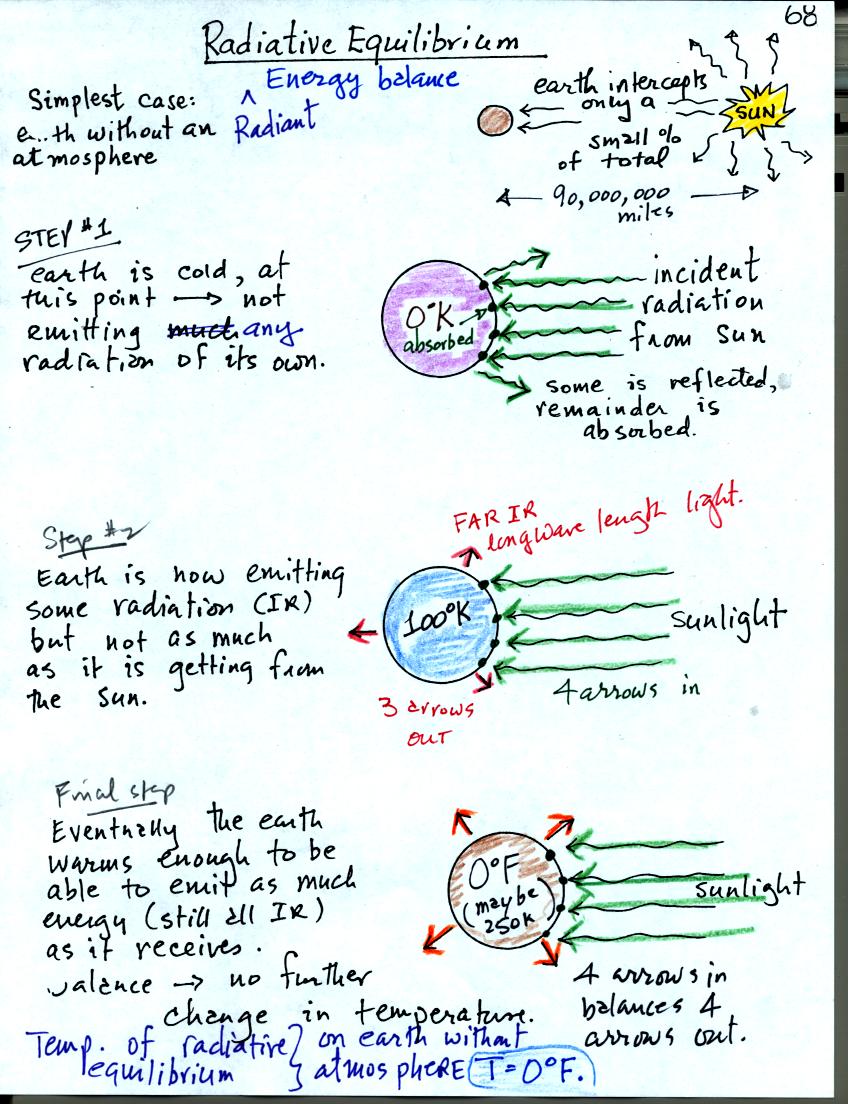 68
Radiative Equilibrium
Simplest case:
e...th without an
atmosphere
^ Energy balance
Radiant
earth intercepts
only a
small %
of total
SUN
90,000,000
miles
STEP #1
earth is cold, at
this point → not
emitting much any
radiation of its own.
0°K
absorbed
incident
radiation
from Sun
some is reflected,
remainder is
absorbed.
Step #2
Earth is now emitting
some radiation (IR)
but not as much
as it is getting from
the Sun.
FAR IR
longwave length light.
100°K
sunlight
3 arrows
OUT
4 arrows in
Final step
Eventually the earth
warms enough to be
able to emit as much
energy (still all IR)
as it receives.
alance → no further
change in temperature.
0°F
(maybe
250K)
sunlight
4 arrows in
balances 4
arrows out.
Temp. of radiative } on earth without
equilibrium } atmosphere T = 0°F.